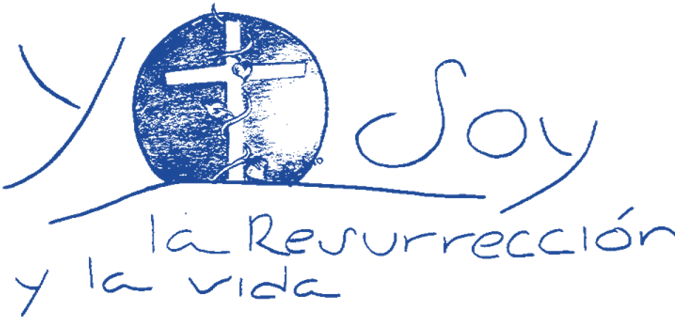 Yo Soy
la Resurrección
y la vida